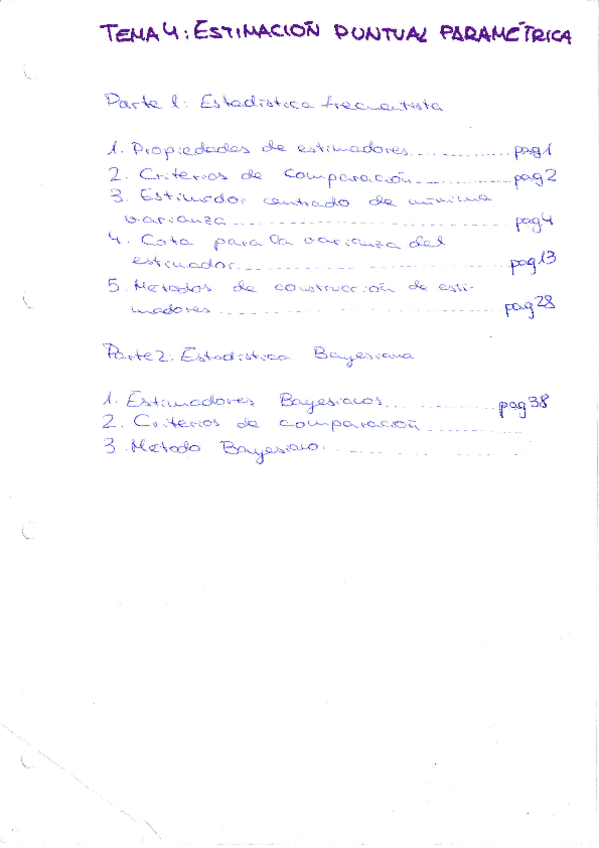 TEMA 4: ESTIMACIÓN PUNTUAL PARAMÉTRICA
Parte 1: Estadística frecuentista
1. Propiedades de estimadores............... pag 1
2. Criterios de comparación............... pag 2
3. Estimador centrado de mínima
varianza............... pag 4
4. Cota para la varianza del
estimador............... pag 13
5. Metodos de construcción de esti-
madores............... pag 28
Parte 2: Estadística Bayesiana
1. Estimadores Bayesianos............... pag 38
2. Criterios de comparación...............
3. Metodo Bayesiano...............